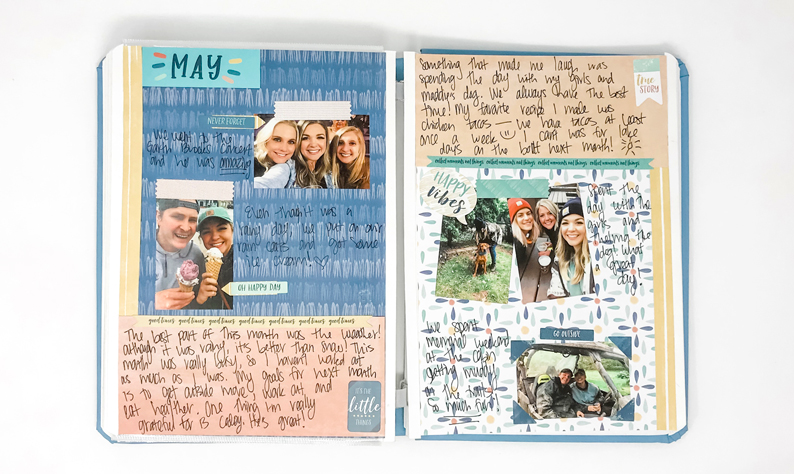 MAY
NEVER FORGET
We went to the
Garth Brooks concert
and he was amazing!
Even though it was a
rainy day, we put on our
rain coats and got some
ice cream!
OH HAPPY DAY
good times good times good times good times good times good times good times
The best part of this month was the weather!
although it was rainy, its better than snow! This
month was really busy, so I haven't worked out
as much as I was. My goals for next month
is to get outside more, work out and
eat healthier. One thing I'm really
grateful for is He's great!
IT'S THE
little
THINGS
Something that made me laugh was
spending the day with my girls and
maddy's dog. We always have the best
time! My favorite recipe I made was
chicken tacos — we have tacos at least
once a week I can't wait for lake
days on the boat next month!
true
STORY
collect moments not things collect moments not things collect moments not things collect moments not things
HAPPY
vibes
Spent the
day with the
girls and
the
dog! What
a great
day!
We spent
memorial weekend
at the cabin
getting muddy
on the trails
so much fun!
GO OUTSIDE